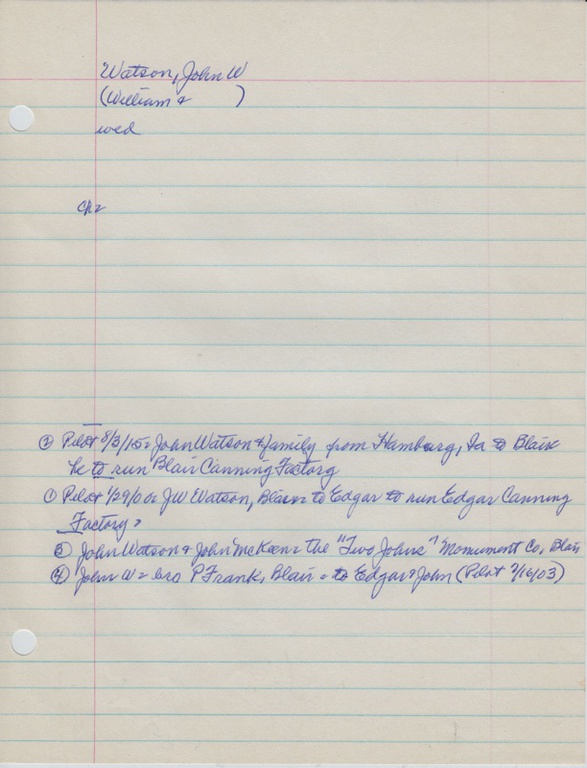 Watson, John W
(William &        )
wed
ch=
② Pilot 8/3/15= John Watson & family from Hamburg, Ia to Blair
he to run Blair Canning Factory
① Pilot 1/29/0 = JW Watson, Blair = to Edgar to run Edgar Canning
Factory=
③ John Watson & John McKeen = the "Two Johns" Monument Co, Blair
④ John W = bro P Frank, Blair = to Edgar & John (Pilot 7/16/03)